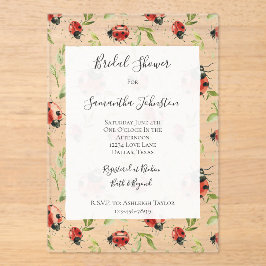 Bridal Shower
For
Samantha Johnston
Saturday June 4th
One O'Clock In the
Afternoon
12234 Love Lane
Dallas, Texas
Registered at
Bath & Beyond
R.S.V.P. to: Ashleigh Taylor